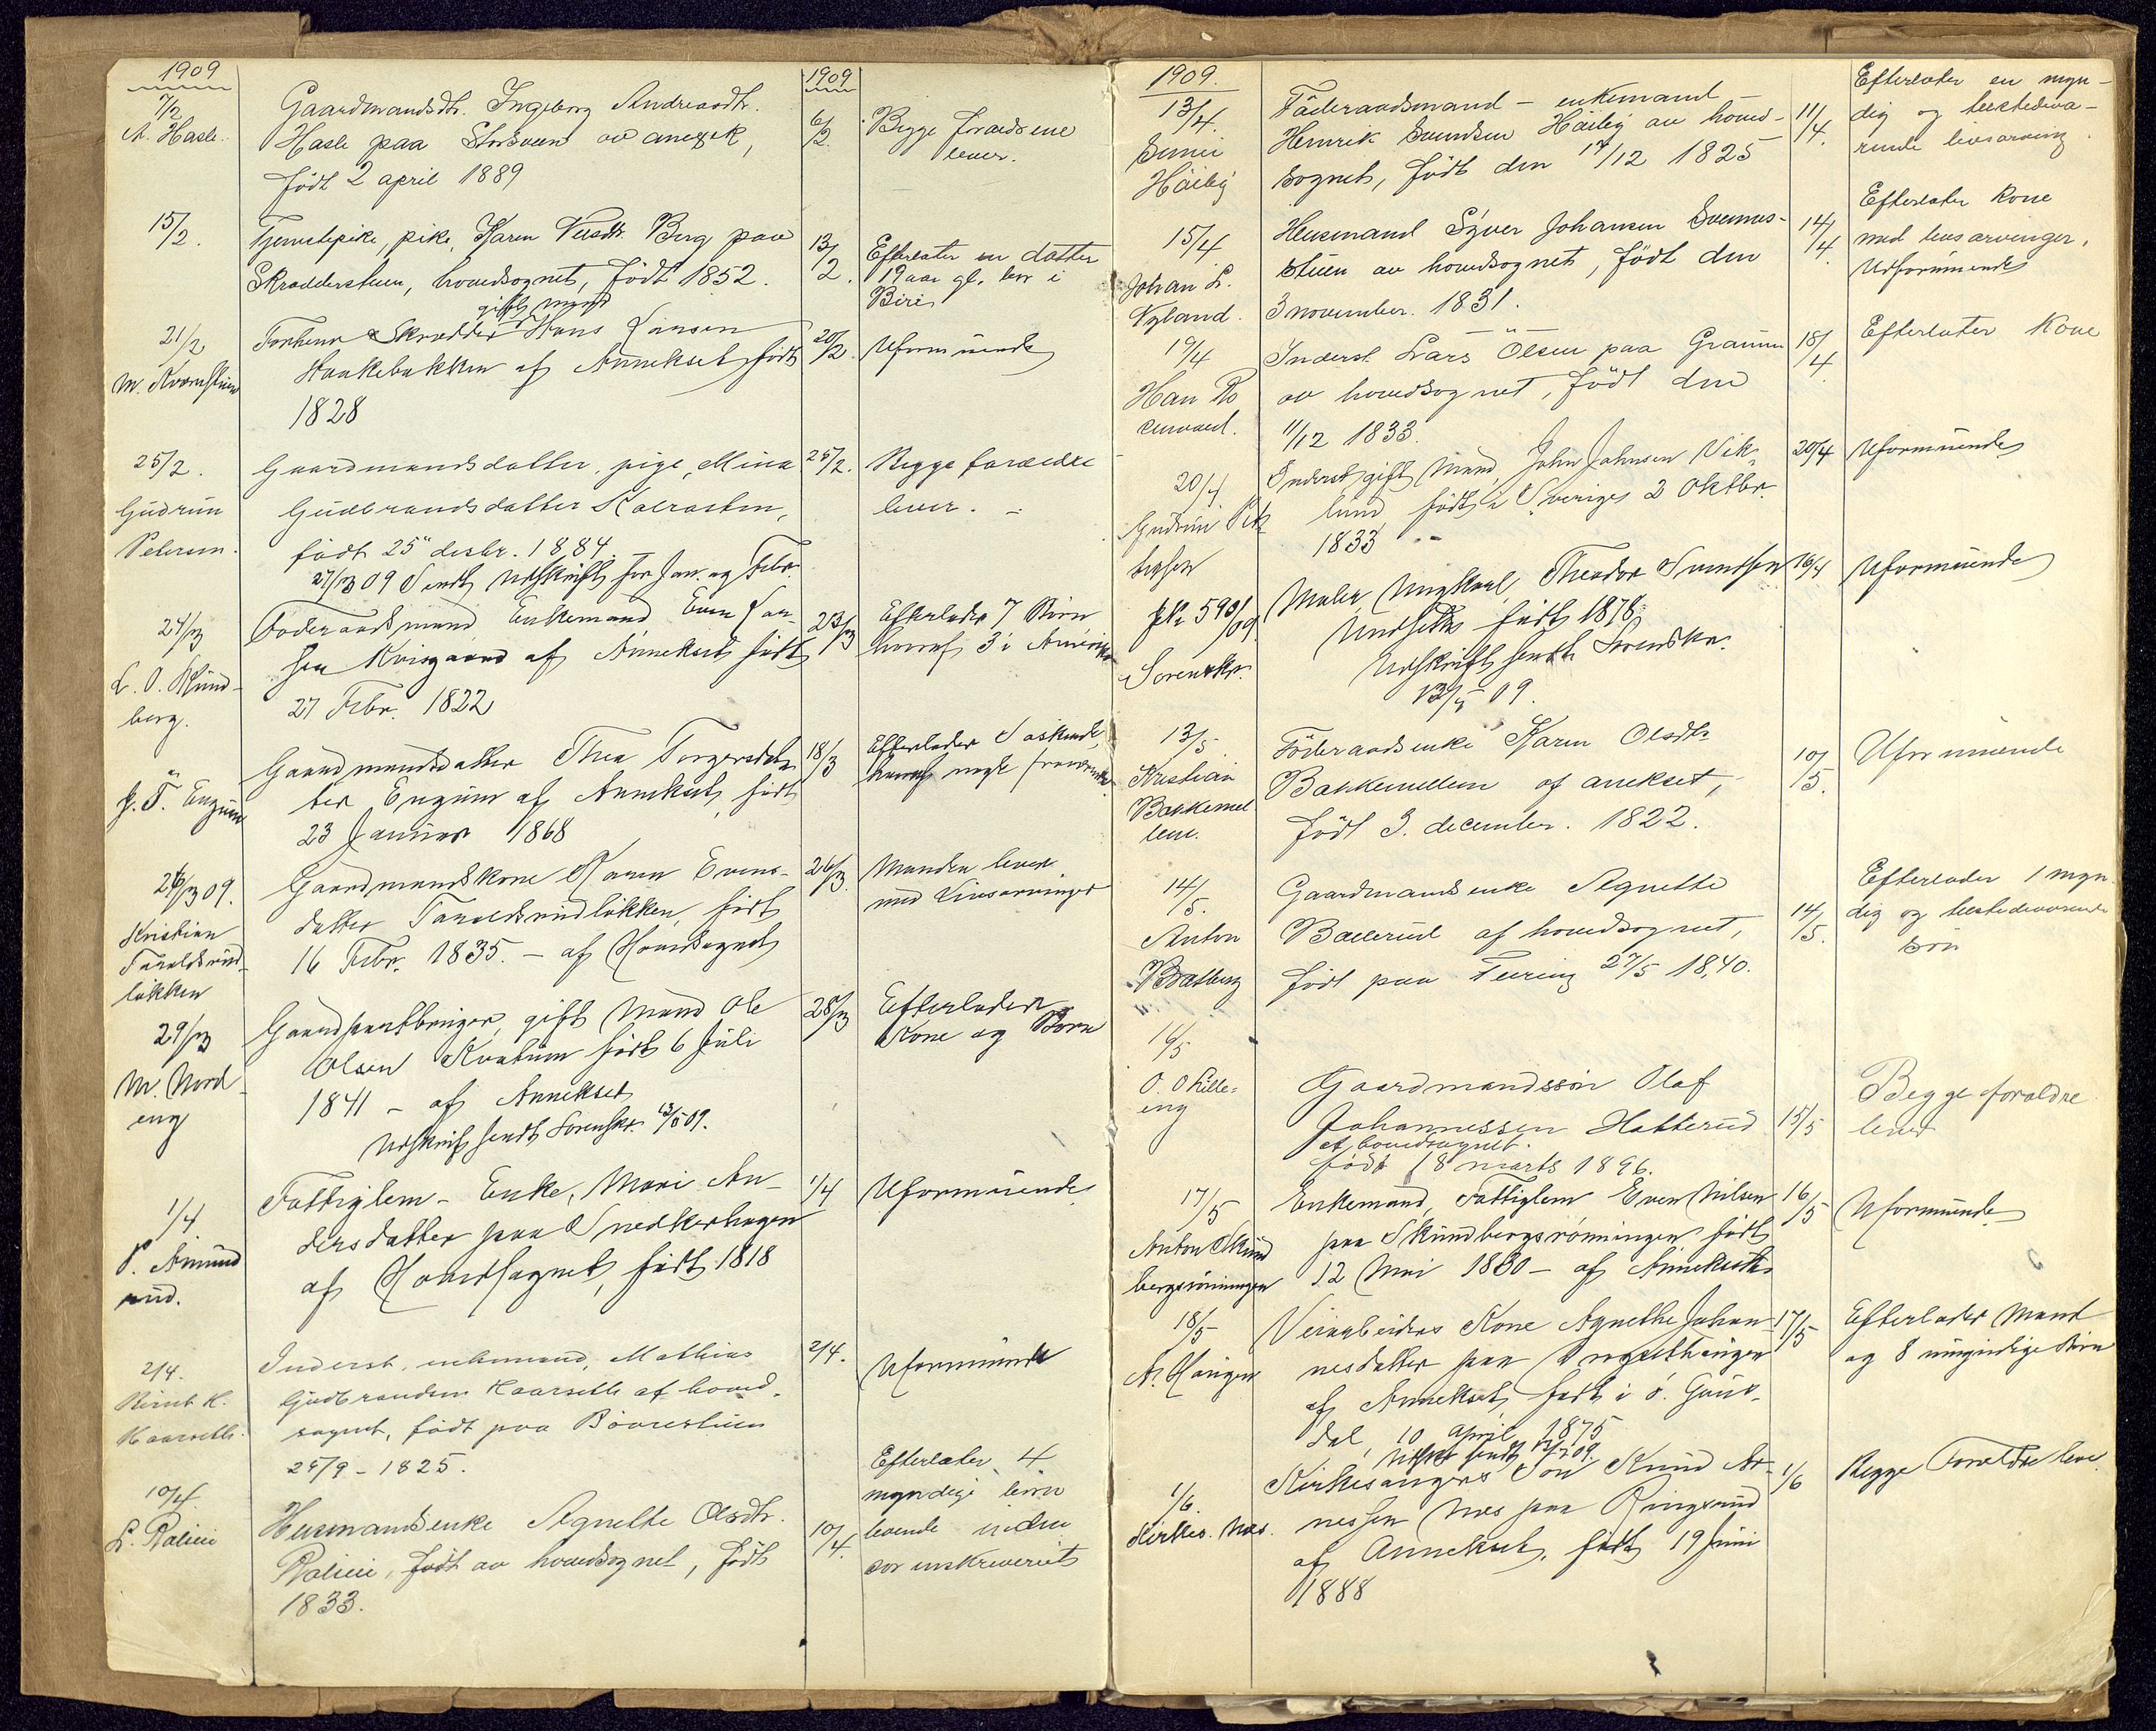 1909
7/2
A. Hasle.
Gaardmandsdtr. Ingeborg Andreasdtr.
Hasle paa Storsveen av anexek,
født 2 april 1889
1909
6/2.
Begge forældrene
lever.
15/2.
Tjenestepike, pike, Karen Nilsdtr. Berg paa
Skræddersteen, hovedsognet, født 1852.
13/2.
Efterlater en datter
19 aar gl. bor i
Biri
21/2
M. Kvernstuen
gift mand
Forhenv. Skrædder Hans Hansen
Haakebakken af Annekset, født
1828
20/2.
Uformuende
25/2.
Gudrun
Petersen.
Gaardmandsdatter, pige, Mina
Gudbrandsdatter Kolrosten,
født 25" desbr. 1884.
27/3 09 Sendt Udskrift for Jan. og Febr.
25/2.
Begge forældre
lever. -
24/3
L. O. Skund-
berg.
Føderaadsmand Enkemand Even Han-
sen Kvisgaard af Annekset født
27 Febr. 1822
23/3
Efterlader 7 Børn
hvoraf 3 i Amerika
J. T. Engum
Gaardmandsdatter Thea Torgersdat-
ter Engum af Annekset, født
23 Januar 1868
18/3
Efterlader Søskende,
hvoraf nogle fraværende
26/3 09.
Kristian
Taraldsrud-
løkken
Gaardmandskone Karen Evens-
datter Taraldsrudløkken, født
16 Febr. 1835. - af Hovedsognet
26/3.
Manden lever
med Livsarvinger
29/3
M. Nord-
eng
Gaardpartbruger, gift Mand Ole
Olsen Kvatum født 6 Juli
1841 - af Annekset
Udskrift sendt Sorenskr. 13/5 09.
28/3
Efterlader
Kone og Børn
1/4.
P. Amund
rud.
Fattiglem - Enke, Mari An-
dersdatter paa Snedkerhagen
af Hovedsognet, født 1818
1/4
Uformuende
2/4.
Bernt K.
Kaarsetth.
Inderst, enkemand, Mathias
Gudbrandsen Kaarseth af hoved-
sognet, født paa Baarestuen
24/9 - 1825.
2/4.
Uformuende
10/4.
L. Rolien
Husmandsenke Agnethe Olsdtr.
Rolien, født av hovedsognet, født
1833.
10/4.
Efterlater 4
myndige børn
boende inden
sorenskriveriet
1909.
13/4.
Simen
Haiby
Føderaadsmand - enkemand
Henrik Svendsen Haiby av hoved-
sognet, født den 17/12 1825
11/4.
Efterlater en myn-
dig og tilstedevæ-
rende livsarving.
15/4
Johan L.
Nyland.
Husmand Syver Johansen Svennes-
stuen av hovedsognet, født den
3 november. 1831.
14/4.
Efterlater kone
med livsarvinger,
Uformuende
19/4
Han Ro
Inderst Lars Olsen paa Graum
av hovedsognet, født den
11/12 1833.
18/4.
Efterlater Kone
20/4
Gudrun Pet
tersen
Inderst, gift Mand, John Johnsen Vik-
lund født i Sverige 2 Oktbr.
1833
20/4
Uformuende
Jk 590/09
Sorenskr.
Maler Ungkarl, Theodor Svendsen
Undseth født 1878,
Udskrift sendt Sorenskr.
13/5 09.
16/4
Uformuende
13/5.
Kristian
Bakkemel
lem.
Föderaadsenke Karen Olsdtr
Bakkemellem af annekset,
født 3. december. 1822.
10/5.
Uformuende
14/5.
Anton
Bratberg
Gaardmandsenke Agnethe
Ballerud af hovedsognet,
født paa Turing 27/5 1840.
14/5.
Efterlader 1 myn-
dig og tilstedeværende
søn
16/5
O. O Lille-
eng
Gaardmandssön Olaf
Johannessen Hatterud
af hovedsognet.
född 18 marts 1896.
15/5
Begge foraldre
lever
17/5
Anton Skund
bergsrønningen
Enkemand, Fattiglem Even Nilsen
paa Skundbergsrønningen født
12 Mai 1830 - af Annekset
16/5
Uformuende
18/5
A. Haugen
Veiarbeiders Kone Agnethe Johan-
nesdatter paa
af Annekset, født i ö. Gaus-
dal, 10 April 1875
Udskr. sendt 09.
17/5
Efterlader Mand
og 8 umyndige Børn
1/6.
Kirkes. Næs.
Kirkesangers Søn Knud Ar-
nesen Næs paa Ringsrud
af Annekset, født 19 Juni
1888
1/6
Begge Forældre leve.